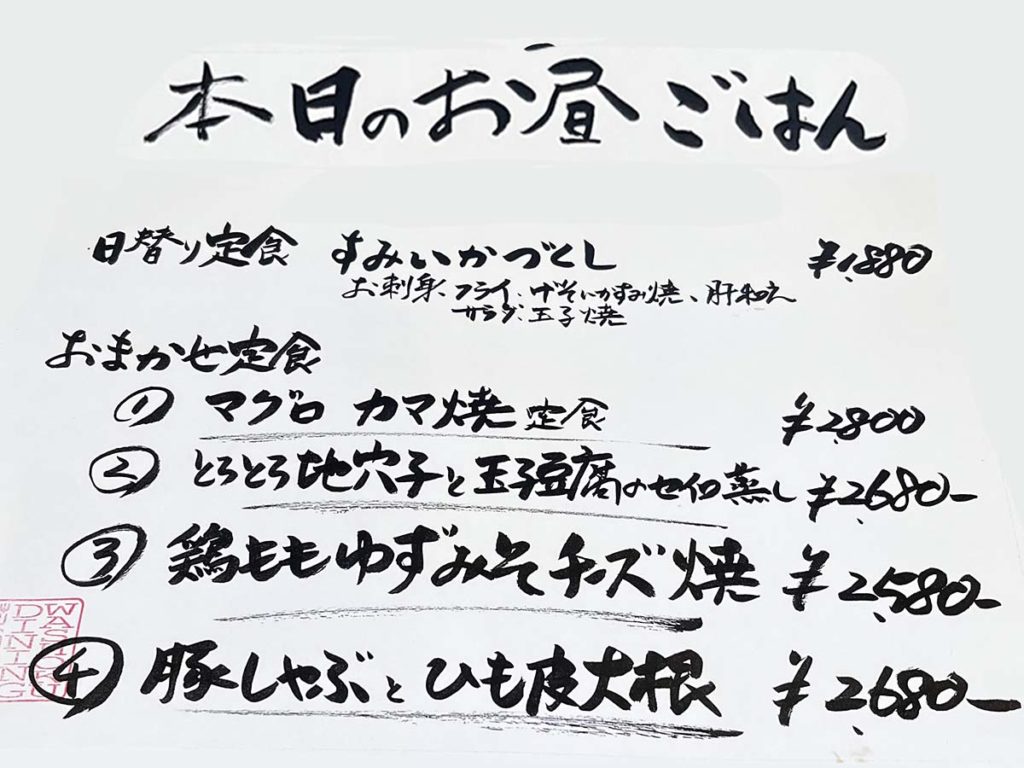 本日のお昼ごはん
日替り定食 すみいかづくし ¥1,880
お刺身、フライ、げそいかすみ焼、肝和え
サラダ、玉子焼
おまかせ定食
① マグロ カマ焼定食 ¥2,800
② とろとろ地穴子と玉子豆腐のセイロ蒸し ¥2,680-
③ 鶏ももゆずみそチーズ焼 ¥2,580-
④ 豚しゃぶとひも皮大根 ¥2,680-
WASHOKU
DINING